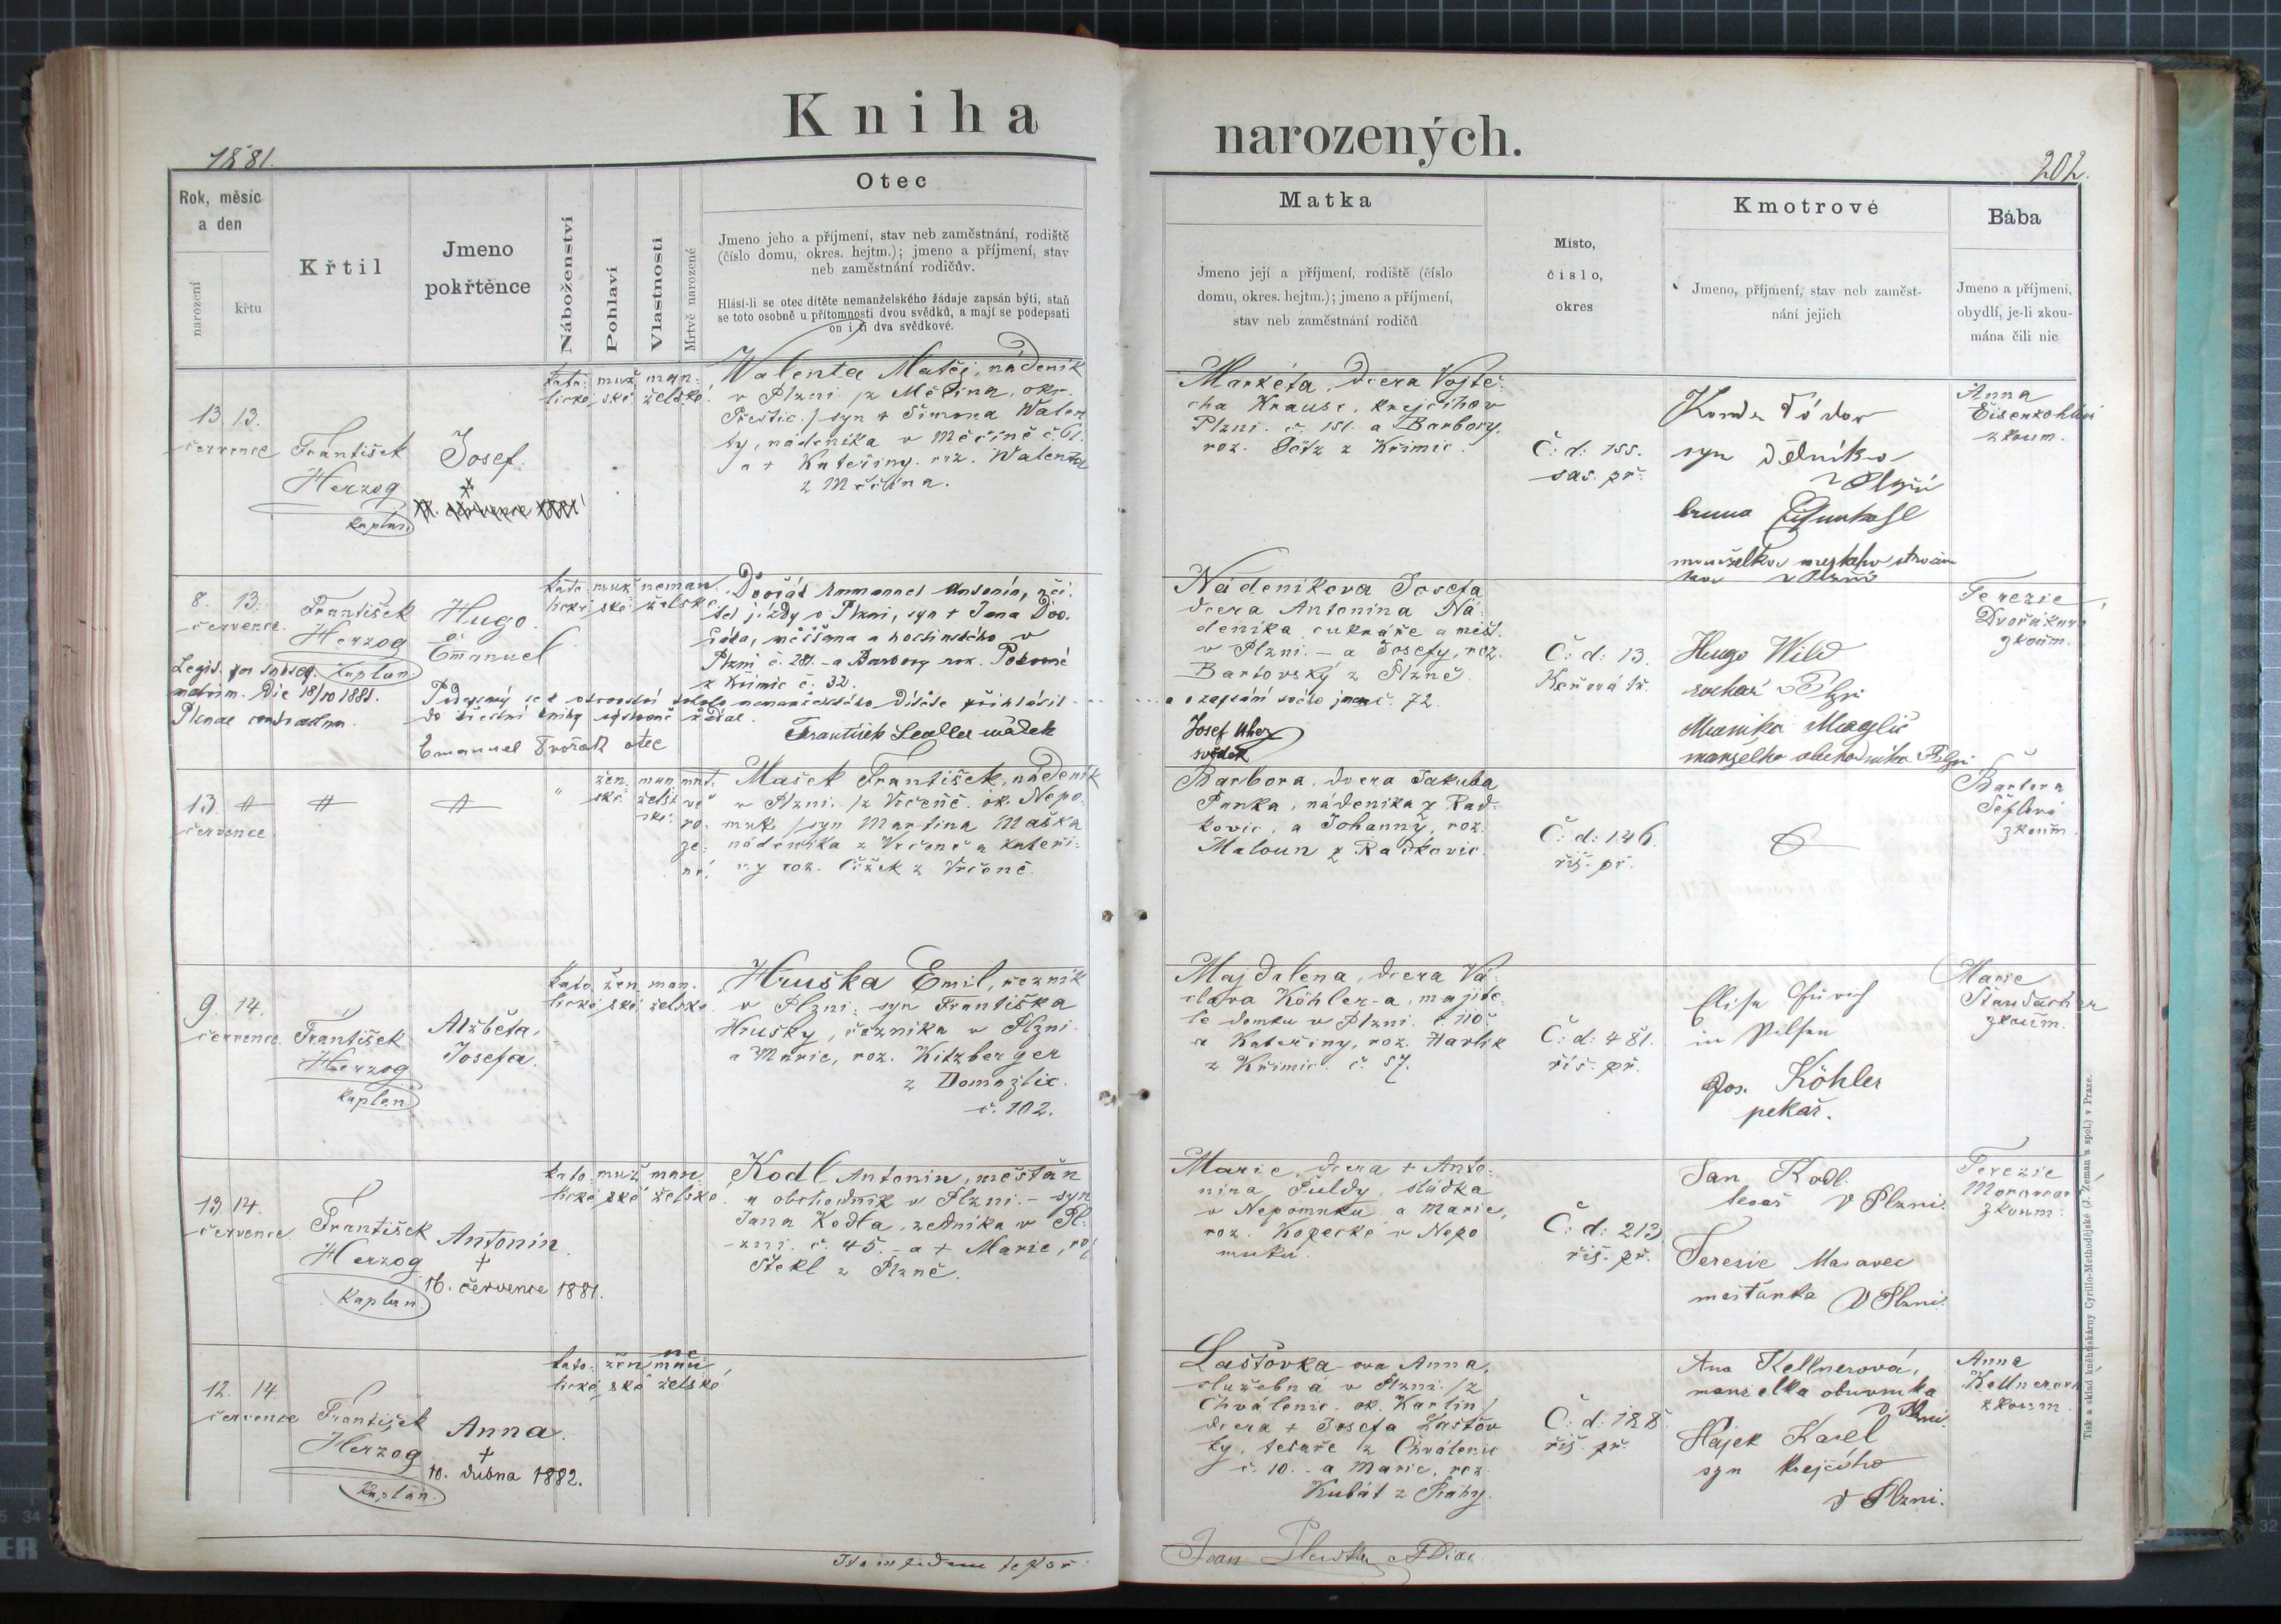 Kniha
narozených.
1881.
202.
Rok, měsíc
a den
narození
křtu
Křtil
Jmeno
pokřtěnce
Náboženství
Pohlaví
Vlastnosti
Mrtvě narozené
Otec
Jmeno jeho a příjmení, stav neb zaměstnání, rodiště
(číslo domu, okres. hejtm.); jmeno a příjmení, stav
neb zaměstnání rodičův.
Hlásí-li se otec dítěte nemanželského žádaje zapsán býti, staň
se toto osobně u přítomnosti dvou svědků, a mají se podepsati
on i ti dva svědkové.
Matka
Jmeno její a příjmení, rodiště (číslo
domu, okres. hejtm.); jmeno a příjmení,
stav neb zaměstnání rodičů
Místo,
číslo,
okres
Kmotrové
Jmeno, příjmení, stav neb zaměst-
nání jejich
Bába
Jmeno a příjmení,
obydlí, je-li zkou-
mána čili nic
13. 13.
července
František
Herzog
kaplan
Josef.
+
kato- muž man-
lické ské želské.
Walenta Matěj, nádeník
v Plzni /z Měčína, okr.
Přeštic./ syn + Šimona Walen
ty, nádeníka v Měčíně č. 61.
a + Kateřiny roz. Walenta
z Měčína.
Markéta, dcera Vojtě-
cha Krause, krejčího v
Plzni. č. 151. a Barbory,
roz. Götz z Křimic.
Č: d: 155.
sas. př.
syn dělníka
v Plzni
Anna
zkoum.
8. 13.
července.
František
Herzog
Kaplan
Hugo
Emanuel
kato- muž neman
lické ské želské
Dvořák Emmanuel Antonín, uči-
tel jízdy v Plzni, syn + Jana Dvo-
řáka, měšťana a hostinského v
Plzni č. 281. - a Barbory roz. Pokorné
z Křimic č. 32.
Legit. per subseq.
matrim. die 18/10 1881.
Plznae contractum.
Podepsaný se k otcovství tohoto nemanželského dítěte přihlásil
do křestní knihy žádal.
a zapsání svého jmena č. 72.
Emanuel Dvořák otec
František
Josef Uher
svědek
Nádeníkova Josefa
dcera Antonína Ná-
deníka cukráře a měšt.
v Plzni. - a Josefy, roz.
Bartovský z Plzně.
Č: d: 13.
Hugo Wild
sochař v Plzni
manželka obchodníka v Plzni
Terezie
Dvořáková
zkoum.
13.
července
" žen man mrt-
ské žels vě
ské. ro-
ze-
né.
Mašek František, nádeník
v Plzni. /z Vrčeně. ok. Nepo-
muk /syn Martina Maška
nádeníka z Vrčeně a Kateři-
ny roz. Čížek z Vrčeně.
Barbora, dcera Jakuba
Panka, nádeníka z Rad-
kovic, a Johanny, roz.
Maloun z Radkovic.
Č: d: 146.
říš. př.
Barbora
zkoum.
9. 14.
července.
František
Herzog
kaplan
Alžběta,
Josefa.
kato. žen man.
lické ské želské.
Hruška Emil, řezník
v Plzni: syn Františka
Hrušky, řezníka v Plzni
a Marie, roz. Kitzberger
z Domažlic.
č. 102.
Majdalena, dcera Vá-
clava Köhler-a, majite-
le domku v Plzni. č. 110.
a Kateřiny, roz. Havlik
z Křimic. č. 57.
Č: d: 481.
říš. př.
in Pilsen
Jos. Köhler
pekař.
Marie
zkoum.
13. 14.
července
František
Herzog
Kaplan
Antonín.
+
16. července 1881.
kato- muž man
lické ské želské.
Kodl Antonín, měšťan
a obchodník v Plzni. - syn
Jana Kodla, zedníka v Pl-
zni. č. 45. - a + Marie, roz
Štekl z Plzně.
Marie, dcera + Anto-
nína Puldy, sládka
v Nepomuku a Marie,
roz. Kopecké v Nepo
muku.
Č: d: 213
říš. př.
Jan Kodl.
tesař v Plzni.
Teresie Moravec
měšťanka v Plzni.
Terezie
zkoum.
12. 14
července
František
Herzog
Kaplan.
Anna.
+
10. dubna 1882.
ne
kato- žen man
lické ské želské
Laštovka-ova Anna,
služebná v Plzni. /z
Chválenic. ok. Karlín/
dcera + Josefa Laštov
ky, tesaře z Chválenic
č. 10. - a Marie, roz.
Kubát z Prahy.
Č: d: 188.
říš. př.
Ana Kellnerová,
manželka obuvníka
v Plzni.
Hájek Karel
syn krejčího
v Plzni.
Anna
Kellnerová
zkoum
Tisk a sklad knihtiskárny Cyrillo-Methodějské (J. Zeman a spol.) v Praze.